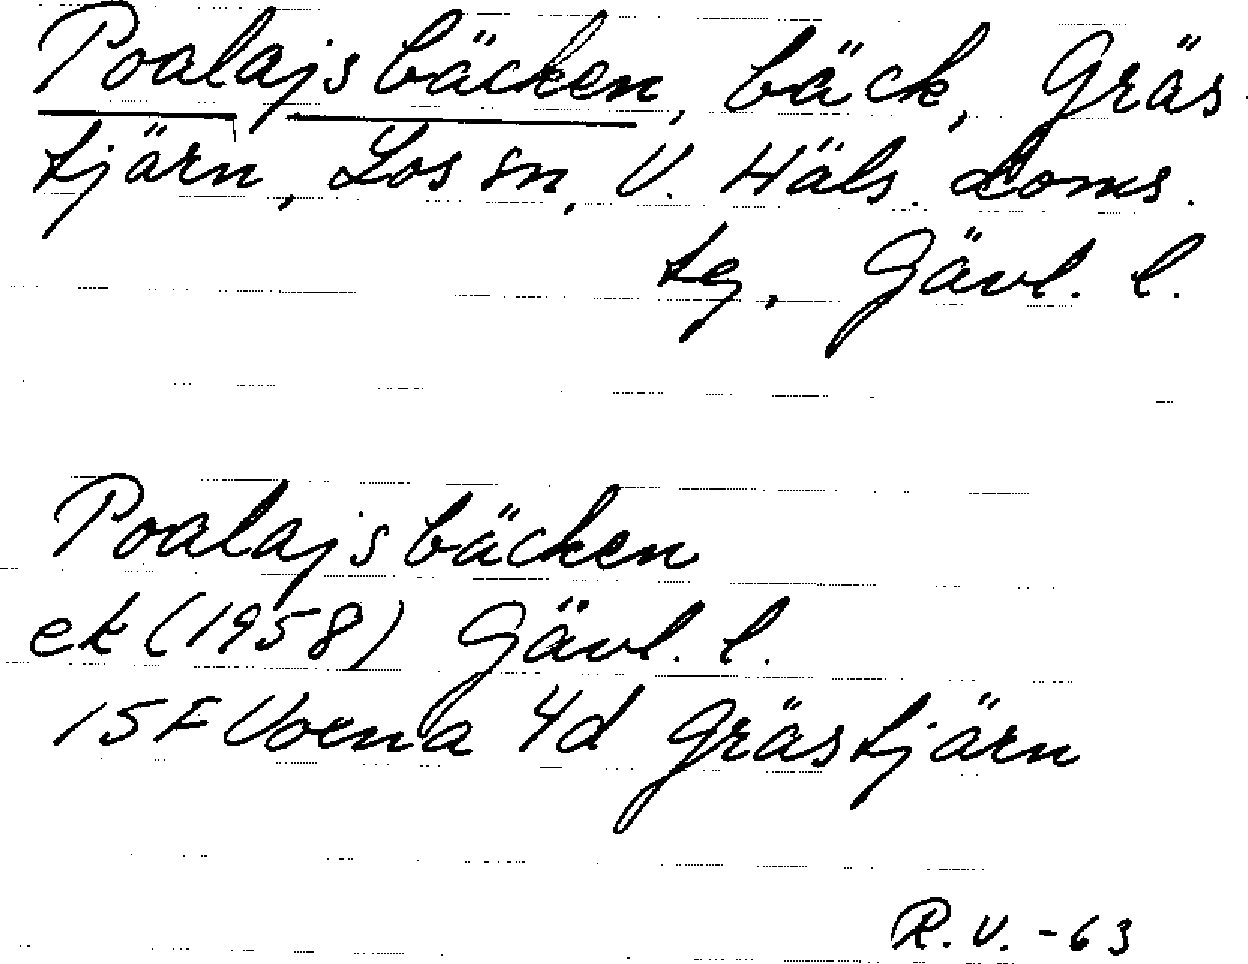 Poalajsbäcken, bäck, Gräs-
tjärn, Los sn, V. Häls. doms.
tg, Gävl. l.
Poalajsbäcken
ek (1958) Gävl. l.
15F Voxna 4d Grästjärn
R.V. -63